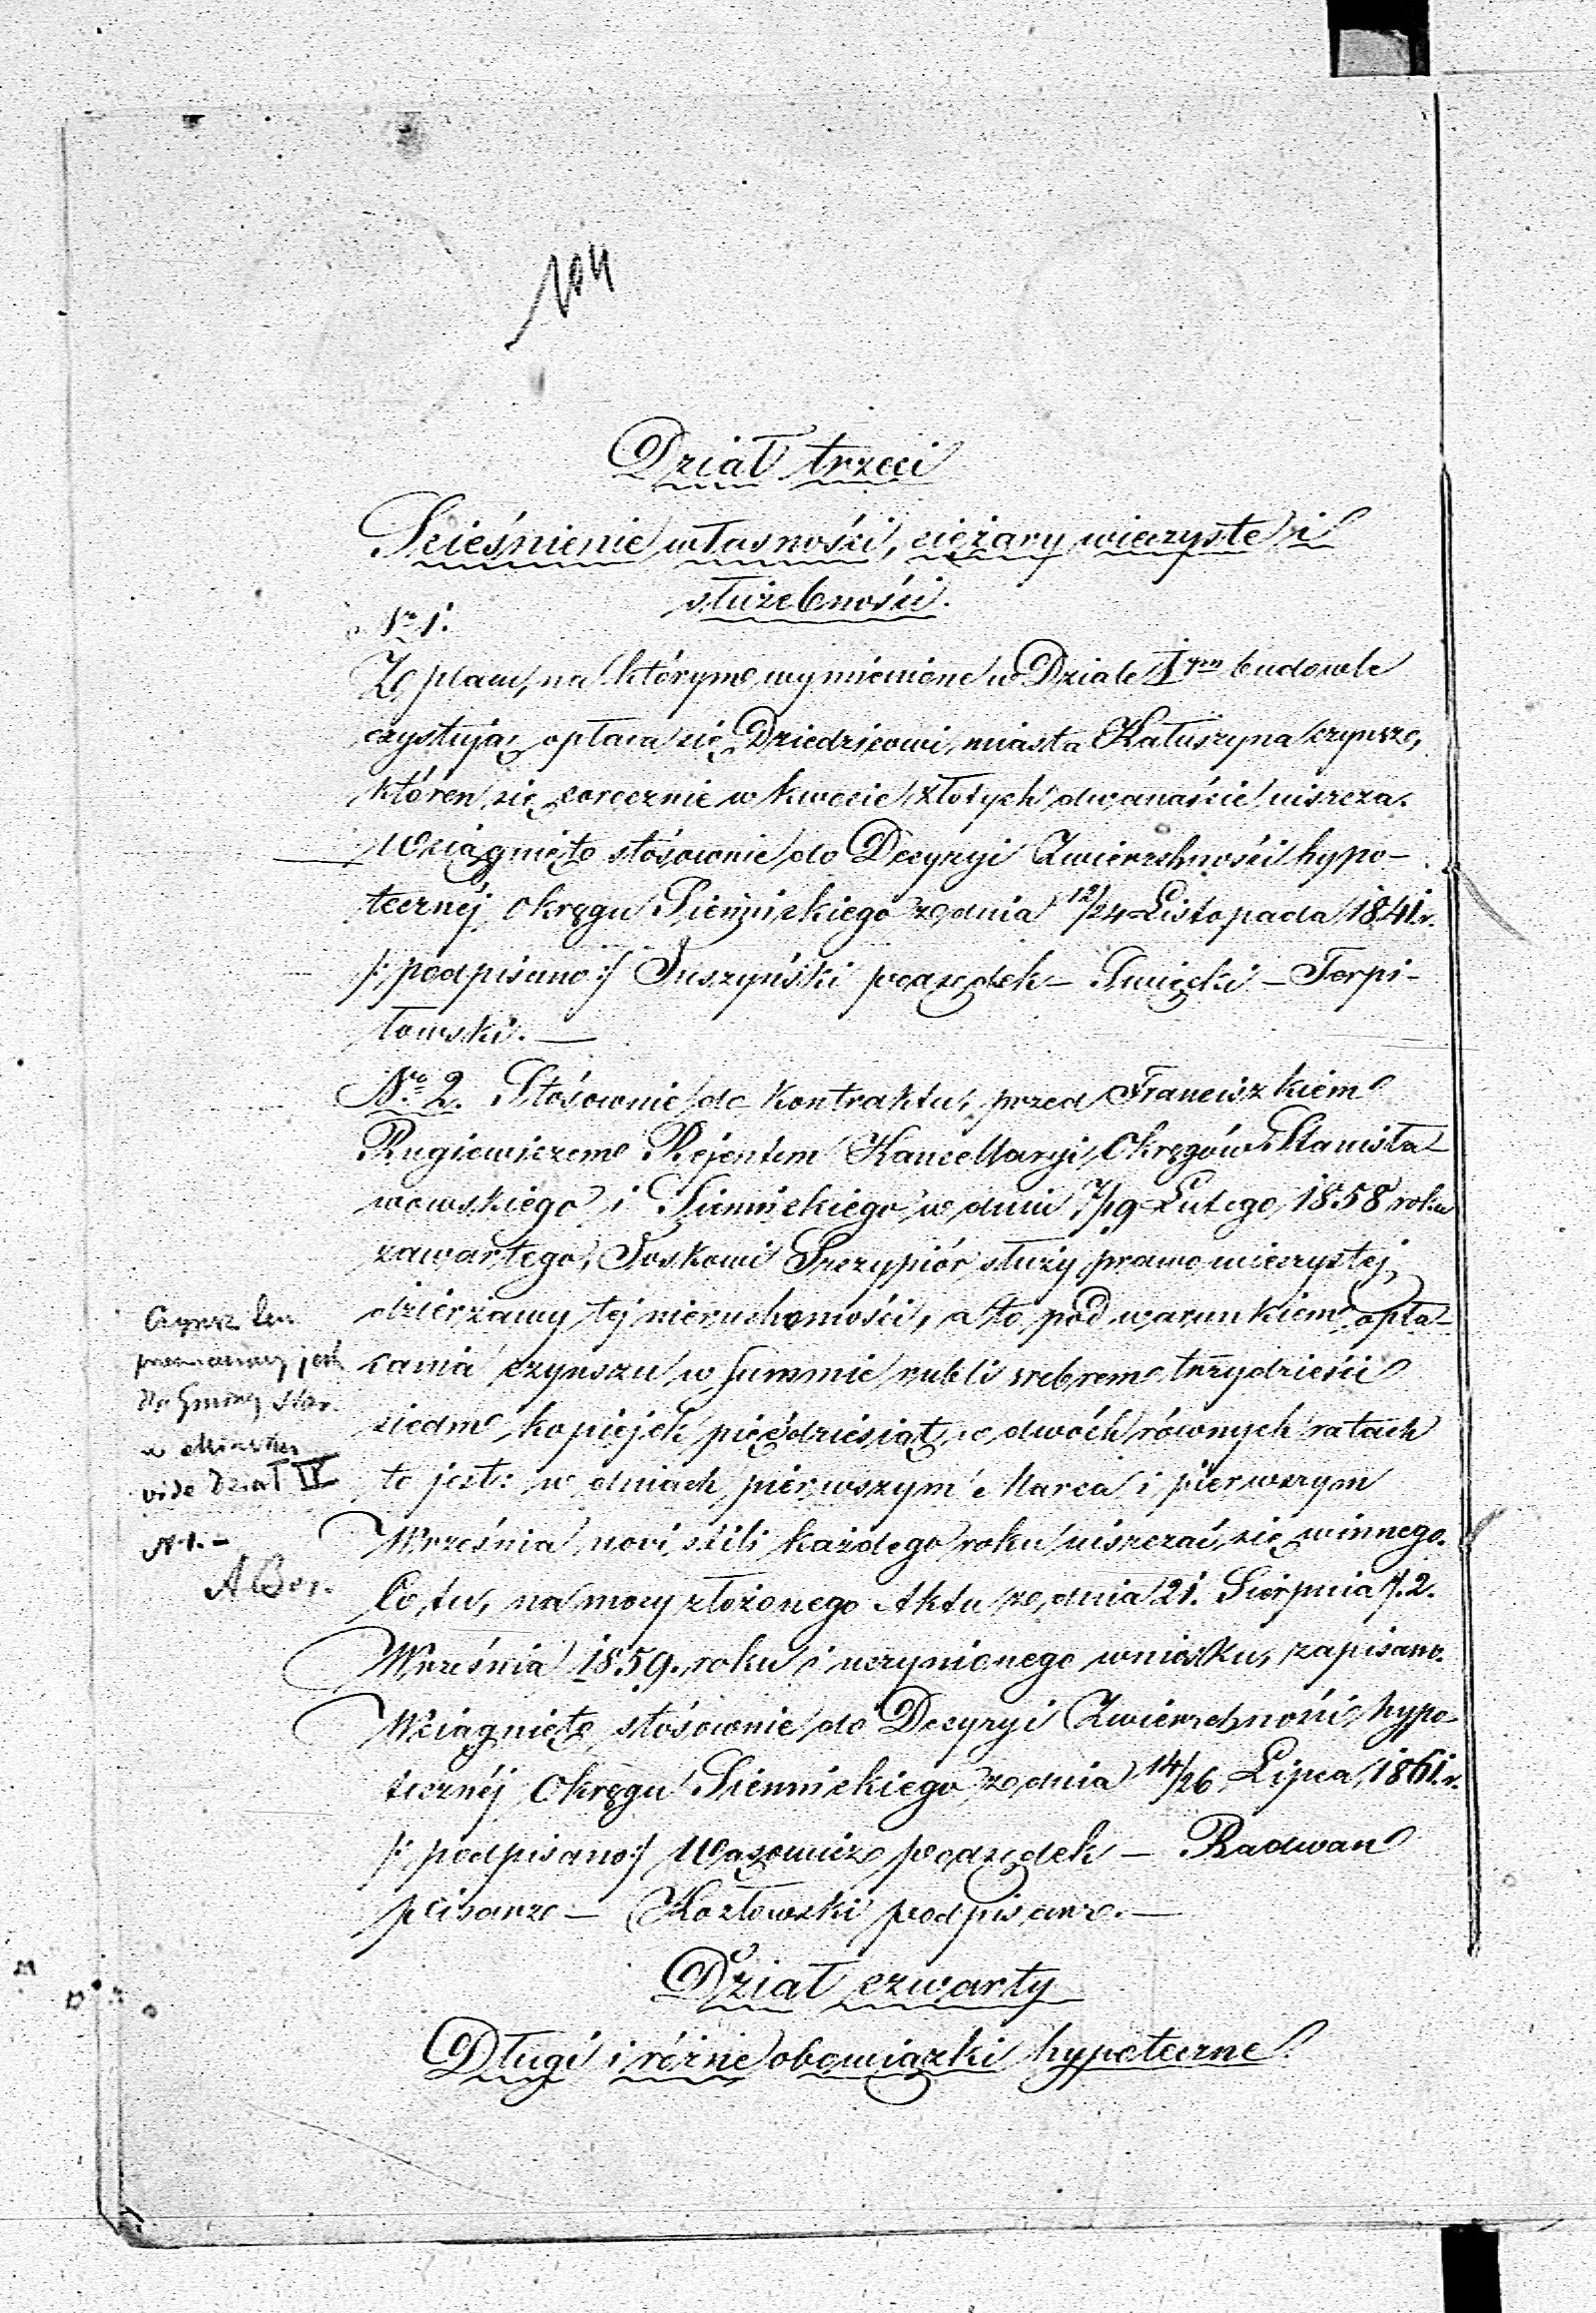 104
Dział trzeci
Ścieśnienie własności, ciężary wieczyste i
służebności.
Nr 1.
Ze placu, na którym wymienione w Dziale Iym budowle
exystują, opłaca się Dziedzicowi miasta Kałuszyna czynsz,
któren się corocznie w kwocie złotych dwanaście uiszcza.
Wciągnięto stósownie do Decyzyi Zwierzchności hypo-
tecznéj Okręgu Siennickiego z dnia 12/24 Listopada 1841 r.
/: podpisano :/ Suszyński podsędek – Święcki – Terpi-
łowski. —
No 2. Stósownie do kontraktu, przed Franciszkiem
Rugiewiczem Rejentem Kancellaryi Okręgów Stanisła-
wowskiego i Siennickiego w dniu 7/19 Lutego 1858 roku
zawartego, Joskowi Przypiór służy prawo wieczystej
dzierżawy tej nieruchomości, a to pod warunkiem opła-
cania czynszu w summie rubli srebrem trzydzieści
siedm kopiejek pięćdziesiąt w dwóch równych ratach
to jest: w dniach pierwszym Marca i pierwszym
Września novi stili każdego roku uiszczać się winnego.
Co tu, na mocy złożonego Aktu z dnia 21. Sierpnia /. 2.
Września 1859. roku i uczynionego wniosku, zapisano.
Wciągnięto stósownie do Decyzyi Zwierzchności hypo-
tecznéj Okręgu Siennickiego z dnia 14/26 Lipca 1861 r.
/: podpisano :/ Wąsowicz podsędek – Radwan
pisarz – Kozłowski podpisarz. —
Czynsz ten
przeniesiony jest
do
w
vide Dział IV
N 1. –
Dział czwarty
Długi i różne obowiązki hypoteczne.